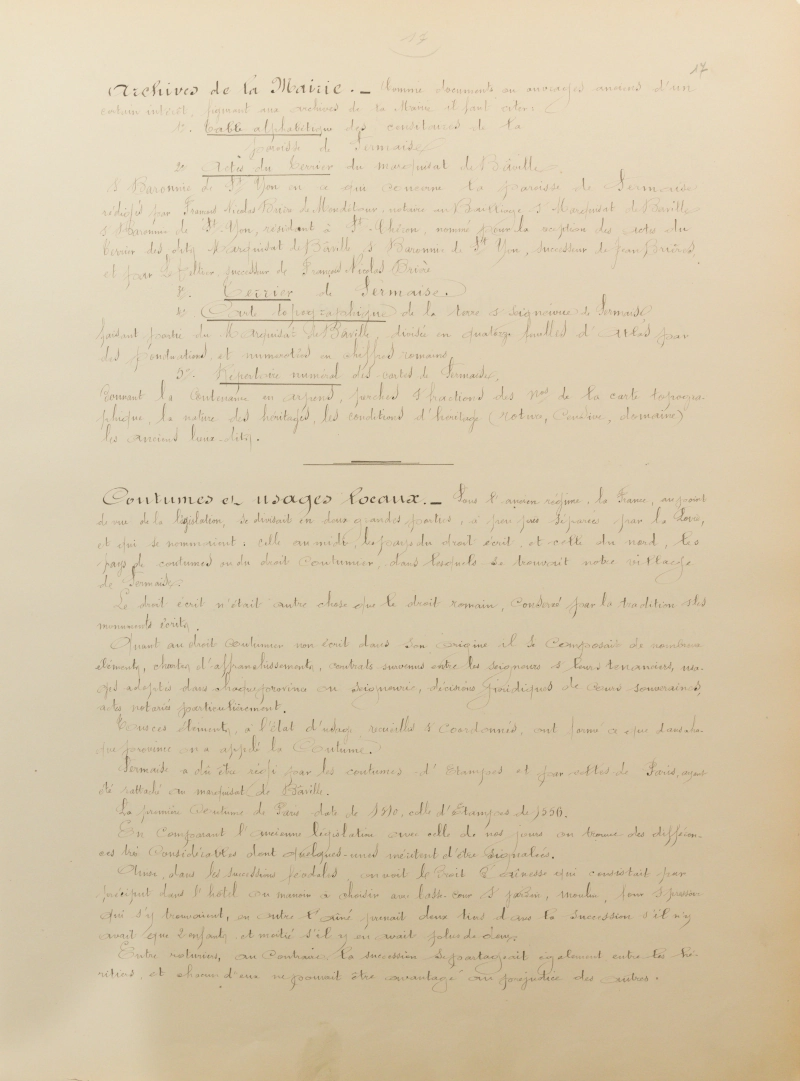 17
17
Archives de la Mairie. _ Comme documents ou ouvrages anciens d'un
certain intérêt, figurant aux archives de la Mairie il faut citer :
1°. Table alphabétique des censitaires de la
paroisse de Sermaise
2° Actes du Terrier du marquisat de Bâville,
& Baronnie de St Yon en ce qui concerne la paroisse de Sermaise
rédigés par François Nicolas Brière de Mondétour, notaire au Bailliage & Marquisat de Baville
& Baronnie de St Yon, résidant à St Chéron, nommé pour la réception des actes du
terrier des dits Marquisat de Bâville & Baronnie de St Yon, successeur de Jean Brières
et par Le Tellier, successeur de François Nicolas Brière
3°. Terrier de Sermaise.
4° Carte topographique de la terre & Seigneurie de Sermaise,
faisant partie du Marquisat de Bâville, divisée en quatorze feuilles d'Atlas par
des ponctuations, et numérotées en chiffres romains.
5°. Répertoire numéral des cartes de Sermaise,
donnant la contenance en arpens, perches & fractions des Nos de la carte topogra-
phique, la nature des héritages, les conditions d'héritage (roture, Censive, domaine)
les anciens lieux-dits.
Coutumes et usages locaux. _ Sous l'ancien régime, la France, au point
de vue de la législation, se divisait en deux grandes parties, à peu près séparées par la Loire,
et qui se nommaient : celle au midi, les pays du droit écrit, et celle du nord, les
pays de coutumes ou du droit Coutumier, dans lesquels se trouvait notre village
de Sermaise.
Le droit écrit n'était autre chose que le droit romain, conservé par la tradition & les
monuments écrits.
Quant au droit Coutumier non écrit dans son origine il se composait de nombreux
éléments, chartes d'affranchissements, contrats survenus entre les seigneurs & leurs tenanciers, usa-
ges adoptés dans chaque province ou seigneurie, décisions juridiques de cours souveraines,
actes notariés particulièrement.
Tous ces éléments, à l'état d'usage, recueillis & coordonnés, ont formé ce que dans cha-
que province on a appelé la Coutume.
Sermaise a dû être régi par les coutumes d'Etampes et par celles de Paris, ayant
été rattaché au marquisat de Bâville.
La première Coutume de Paris date de 1510, celle d'Etampes de 1556.
En comparant l'ancienne législation avec celle de nos jours on trouve des différen-
ces très Considérables dont quelques-unes méritent d'être signalées.
Ainsi, dans les successions féodales, on voit le Droit d'Aînesse qui consistait par
préciput dans l'hôtel ou manoir à choisir avec basse-cour & jardin, moulin, four & pressoir
qui s'y trouvaient, en outre l'aîné prenait deux tiers dans la succession s'il n'y
avait que 2 enfants, et moitié s'il y en avait plus de deux.
Entre roturiers, au Contraire, la succession se partageait également entre les hé-
ritiers, et chacun d'eux ne pouvait être avantagé au préjudice des autres.